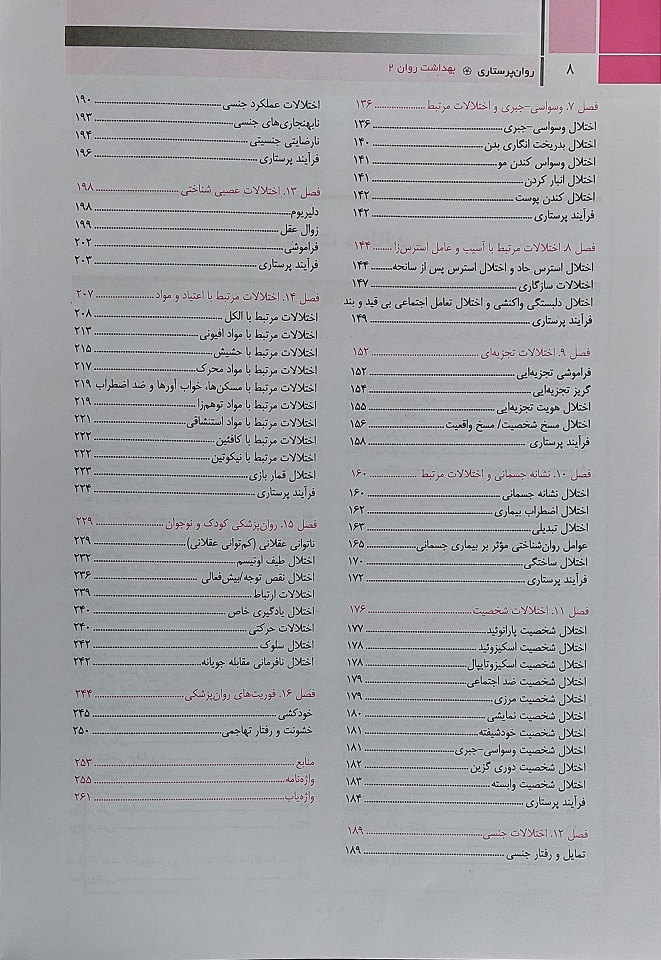 ۸ روان‌پرستاری بهداشت روان ۲
فصل ۷. وسواسی-جبری و اختلالات مرتبط ........ ۱۳۶
اختلال وسواسی-جبری ........ ۱۳۶
اختلال بدریخت انگاری بدن ........ ۱۴۰
اختلال وسواس کندن مو ........ ۱۴۱
اختلال انبار کردن ........ ۱۴۱
اختلال کندن پوست ........ ۱۴۲
فرآیند پرستاری ........ ۱۴۲
فصل ۸. اختلالات مرتبط با آسیب و عامل استرس‌زا ........ ۱۴۴
اختلال استرس حاد و اختلال استرس پس از سانحه ........ ۱۴۴
اختلالات سازگاری ........ ۱۴۷
اختلال دلبستگی واکنشی و اختلال تعامل اجتماعی بی قید و بند
فرآیند پرستاری ........ ۱۴۹
فصل ۹. اختلالات تجزیه‌ای ........ ۱۵۲
فراموشی تجزیه‌ایی ........ ۱۵۲
گریز تجزیه‌ایی ........ ۱۵۴
اختلال هویت تجزیه‌ایی ........ ۱۵۵
اختلال مسخ شخصیت/ مسخ واقعیت ........ ۱۵۶
فرآیند پرستاری ........ ۱۵۸
فصل ۱۰. نشانه جسمانی و اختلالات مرتبط ........ ۱۶۰
اختلال نشانه جسمانی ........ ۱۶۰
اختلال اضطراب بیماری ........ ۱۶۲
اختلال تبدیلی ........ ۱۶۳
عوامل روان‌شناختی مؤثر بر بیماری جسمانی ........ ۱۶۵
اختلال ساختگی ........ ۱۷۰
فرآیند پرستاری ........ ۱۷۲
فصل ۱۱. اختلالات شخصیت ........ ۱۷۶
اختلال شخصیت پارانوئید ........ ۱۷۷
اختلال شخصیت اسکیزوئید ........ ۱۷۸
اختلال شخصیت اسکیزوتایپال ........ ۱۷۸
اختلال شخصیت ضد اجتماعی ........ ۱۷۹
اختلال شخصیت مرزی ........ ۱۷۹
اختلال شخصیت نمایشی ........ ۱۸۰
اختلال شخصیت خودشیفته ........ ۱۸۱
اختلال شخصیت وسواسی-جبری ........ ۱۸۱
اختلال شخصیت دوری گزین ........ ۱۸۲
اختلال شخصیت وابسته ........ ۱۸۳
فرآیند پرستاری ........ ۱۸۴
فصل ۱۲. اختلالات جنسی ........ ۱۸۹
تمایل و رفتار جنسی ........ ۱۸۹
اختلالات عملکرد جنسی ........ ۱۹۰
نابهنجاری‌های جنسی ........ ۱۹۳
نارضایتی جنسیتی ........ ۱۹۴
فرآیند پرستاری ........ ۱۹۶
فصل ۱۳. اختلالات عصبی شناختی ........ ۱۹۸
دلیریوم ........ ۱۹۸
زوال عقل ........ ۱۹۹
فراموشی ........ ۲۰۲
فرآیند پرستاری ........ ۲۰۳
فصل ۱۴. اختلالات مرتبط با اعتیاد و مواد ........ ۲۰۷
اختلالات مرتبط با الکل ........ ۲۰۸
اختلالات مرتبط با مواد افیونی ........ ۲۱۳
اختلالات مرتبط با حشیش ........ ۲۱۵
اختلالات مرتبط با مواد محرک ........ ۲۱۷
اختلالات مرتبط با مسکن‌ها، خواب آورها و ضد اضطراب ۲۱۹
اختلالات مرتبط با مواد توهم‌زا ........ ۲۱۹
اختلالات مرتبط با مواد استنشاقی ........ ۲۲۱
اختلالات مرتبط با کافئین ........ ۲۲۲
اختلالات مرتبط با نیکوتین ........ ۲۲۲
اختلال قمار بازی ........ ۲۲۳
فرآیند پرستاری ........ ۲۲۴
فصل ۱۵. روان‌پزشکی کودک و نوجوان ........ ۲۲۹
ناتوانی عقلانی (کم‌توانی عقلانی) ........ ۲۲۹
اختلال طیف اوتیسم ........ ۲۳۲
اختلال نقص توجه/بیش‌فعالی ........ ۲۳۶
اختلالات ارتباط ........ ۲۳۹
اختلال یادگیری خاص ........ ۲۴۰
اختلالات حرکتی ........ ۲۴۰
اختلال سلوک ........ ۲۴۲
اختلال نافرمانی مقابله جویانه ........ ۲۴۲
فصل ۱۶. فوریت‌های روان‌پزشکی ........ ۲۴۴
خودکشی ........ ۲۴۵
خشونت و رفتار تهاجمی ........ ۲۵۰
منابع ........ ۲۵۳
واژه‌نامه ........ ۲۵۵
واژه‌یاب ........ ۲۶۱